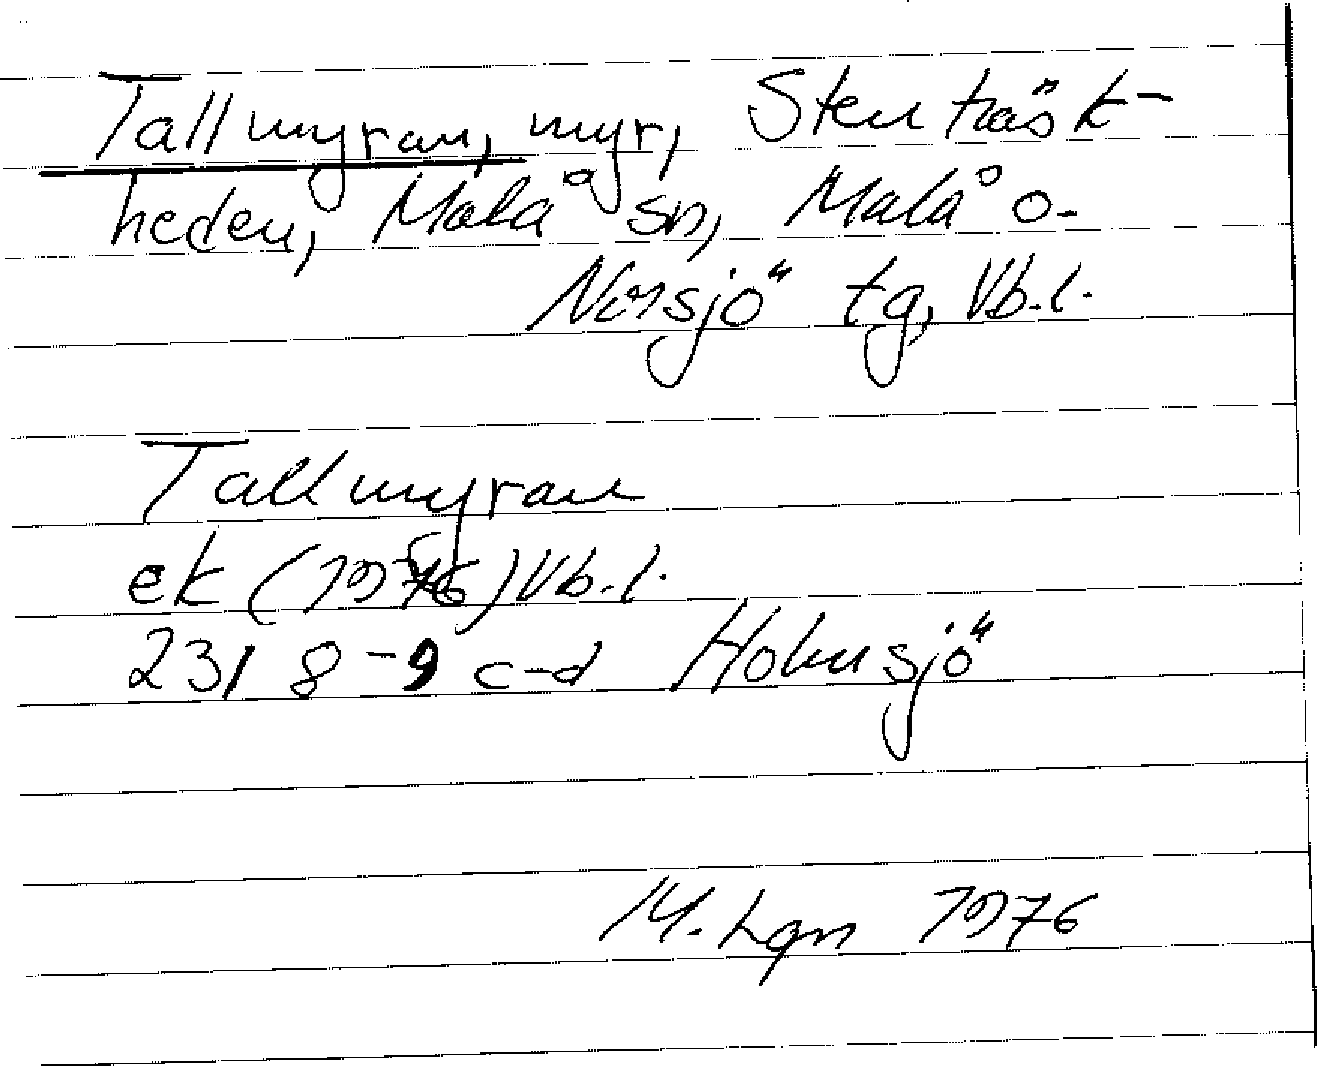 Tallmyran, myr, Stenträsk-
heden, Malå sn, Malå o.
Norsjö tg, Vb.l.
Tallmyran
ek (1976) Vb.l.
23I 8-9 c-d Holmsjö
M. Lgn 1976